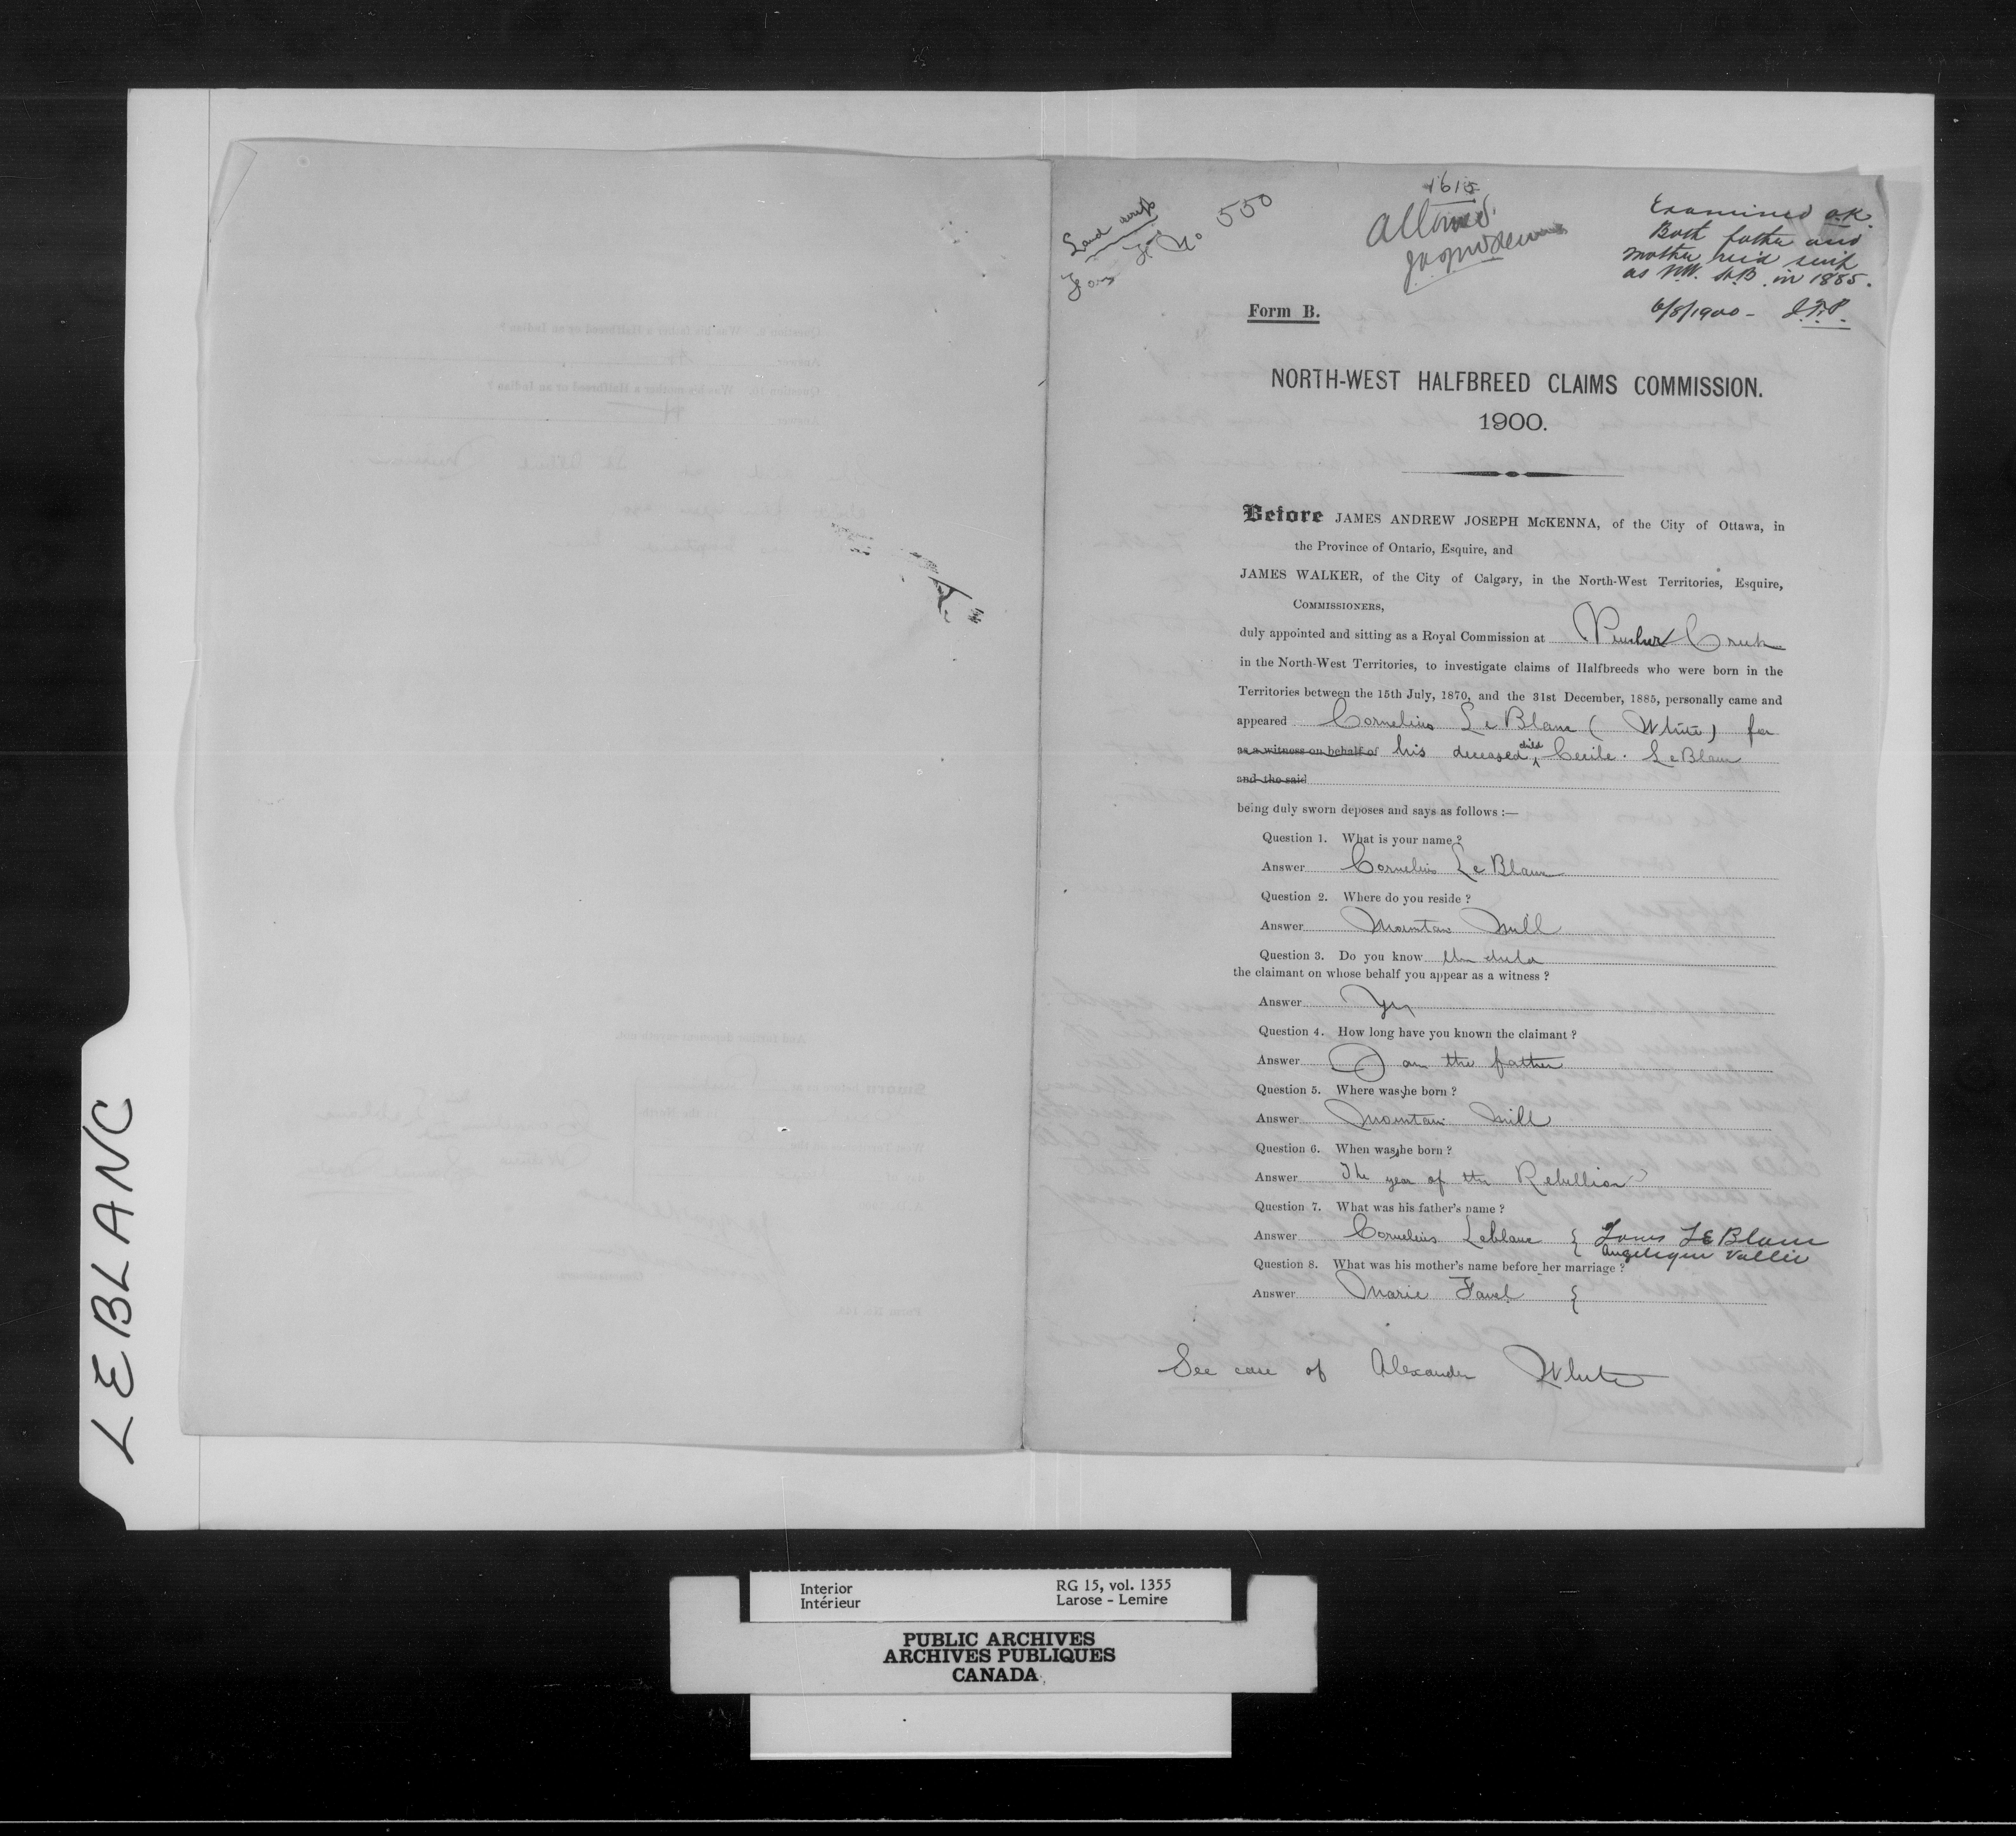 LEBLANC
Land scrip
Form No 550
1615
Allowed
Examined o.k.
Both father and
mother rec'd scrip
as N.W. H.B. in 1885.
6/8/1900 - J.F.P.
Form B.
NORTH-WEST HALFBREED CLAIMS COMMISSION.
1900.
Before JAMES ANDREW JOSEPH McKENNA, of the City of Ottawa, in
the Province of Ontario, Esquire, and
JAMES WALKER, of the City of Calgary, in the North-West Territories, Esquire,
COMMISSIONERS,
duly appointed and sitting as a Royal Commission at Pincher Creek
in the North-West Territories, to investigate claims of Halfbreeds who were born in the
Territories between the 15th July, 1870, and the 31st December, 1885, personally came and
appeared Cornelius Le Blanc (White) for
as a witness on behalf of his deceased child Cecile LeBlanc
and the said
being duly sworn deposes and says as follows :—
Question 1. What is your name ?
Answer Cornelius Le Blanc
Question 2. Where do you reside ?
Answer Mountain Mill
Question 3. Do you know the child
the claimant on whose behalf you appear as a witness ?
Answer Yes
Question 4. How long have you known the claimant ?
Answer I am the father
Question 5. Where was she born ?
Answer Mountain Mill
Question 6. When was she born ?
Answer The year of the Rebellion
Question 7. What was his father's name ?
Answer Cornelius Leblanc { Louis LeBlanc
Angelique Vallee
Question 8. What was his mother's name before her marriage ?
Answer Marie Favel {
See case of Alexander White
Interior
Intérieur
RG 15, vol. 1355
Larose - Lemire
PUBLIC ARCHIVES
ARCHIVES PUBLIQUES
CANADA